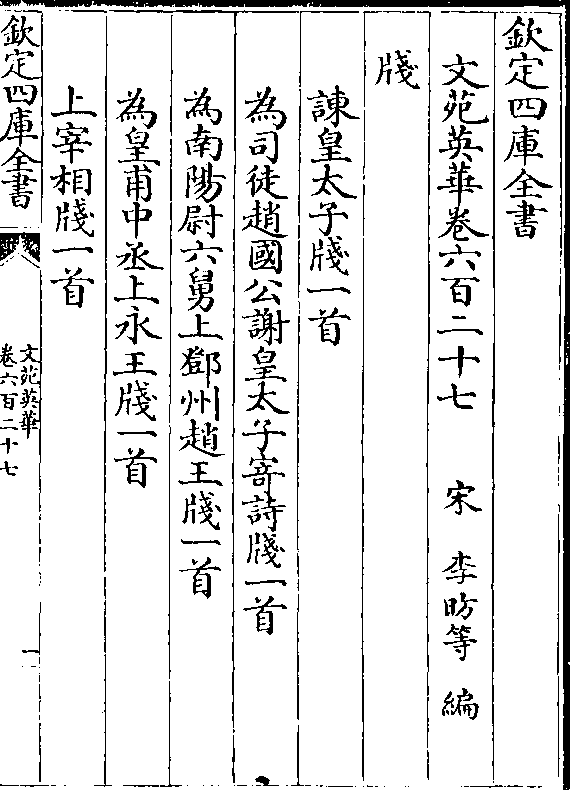 欽定四庫全書
文苑英華卷六百二十七 宋 李昉等 編
牋
諫皇太子牋一首
為司徒趙國公謝皇太子寄詩牋一首
為南陽尉六舅上鄧州趙王牋一首
為皇甫中丞上永王牋一首
上宰相牋一首
欽定四庫全書
文苑英華
卷六百二十七
一